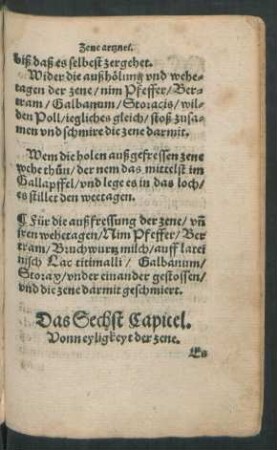 Zene artznei.
biß daß es selbest zergehet.
Wider die außhölung vnd wehe-
tagen der zene/nim Pfeffer/Ber-
tram/Galbanum/Storacis/wil-
den Poll/iegliches gleich/stoß zusa-
men vnd schmire die zene darmit.
Wem die holen außgefressen zene
wehe thůn/der nem das mittelst im
Gallapffel/vnd lege es in das loch/
es stillet den weetagen.
¶ Für die außfressung der zene/vñ
iren wehetagen/Nim Pfeffer/Ber
tram/Bruchwurtz milch/auff latei
nisch Lac titimalli/Galbanum/
Storay/vnder einander gestossen/
vnd die zene darmit geschmiert.
Das Sechst Capitel.
Vonn eyligkeyt der zene.
Es